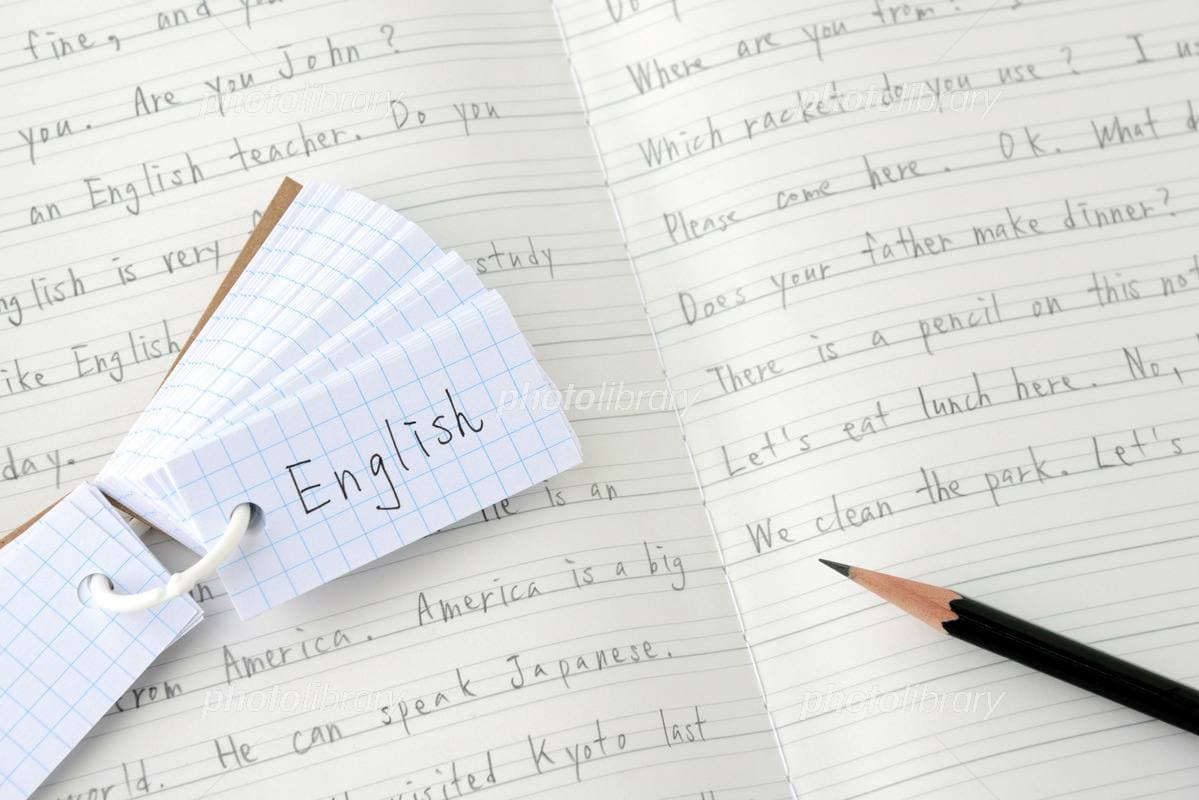 fine, and you
you. Are you John?
an English teacher. Do you
is very
study
like English
day.
English
He is an
in
from America. America is a big
world. He can speak Japanese.
visited Kyoto last
Do
Where are you from?
Which racket do you use? I
Please come here. OK. What
Does your father make dinner?
There is a pencil on this
Let's eat lunch here. No,
We clean the park. Let's
photolibrary
photolibrary
photolibrary
photolibrary
photolibrary